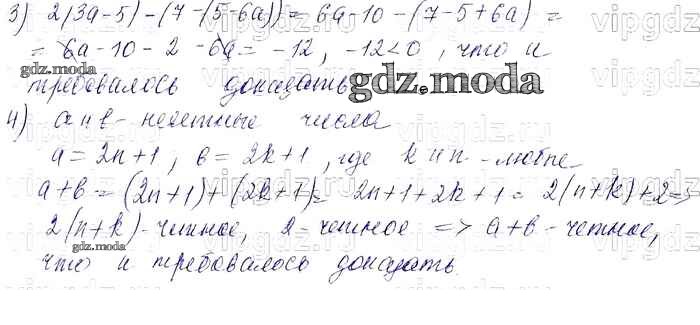 3) 2(3a-5)-(7-(5-6a))= 6a-10-(7-5+6a) =
= 6a-10-2-6a= -12, -12<0, что и
требовалось доказать.
gdz.moda
gdz.moda
4) a и в - нечетные числа
a=2n+1, в=2k+1, где k и n - любые
a+в = (2n+1)+(2k+1)= 2n+1+2k+1= 2(n+k)+2=>
2(n+k)-четное, 2-четное => a+в-четное,
gdz.moda
что и требовалось доказать.